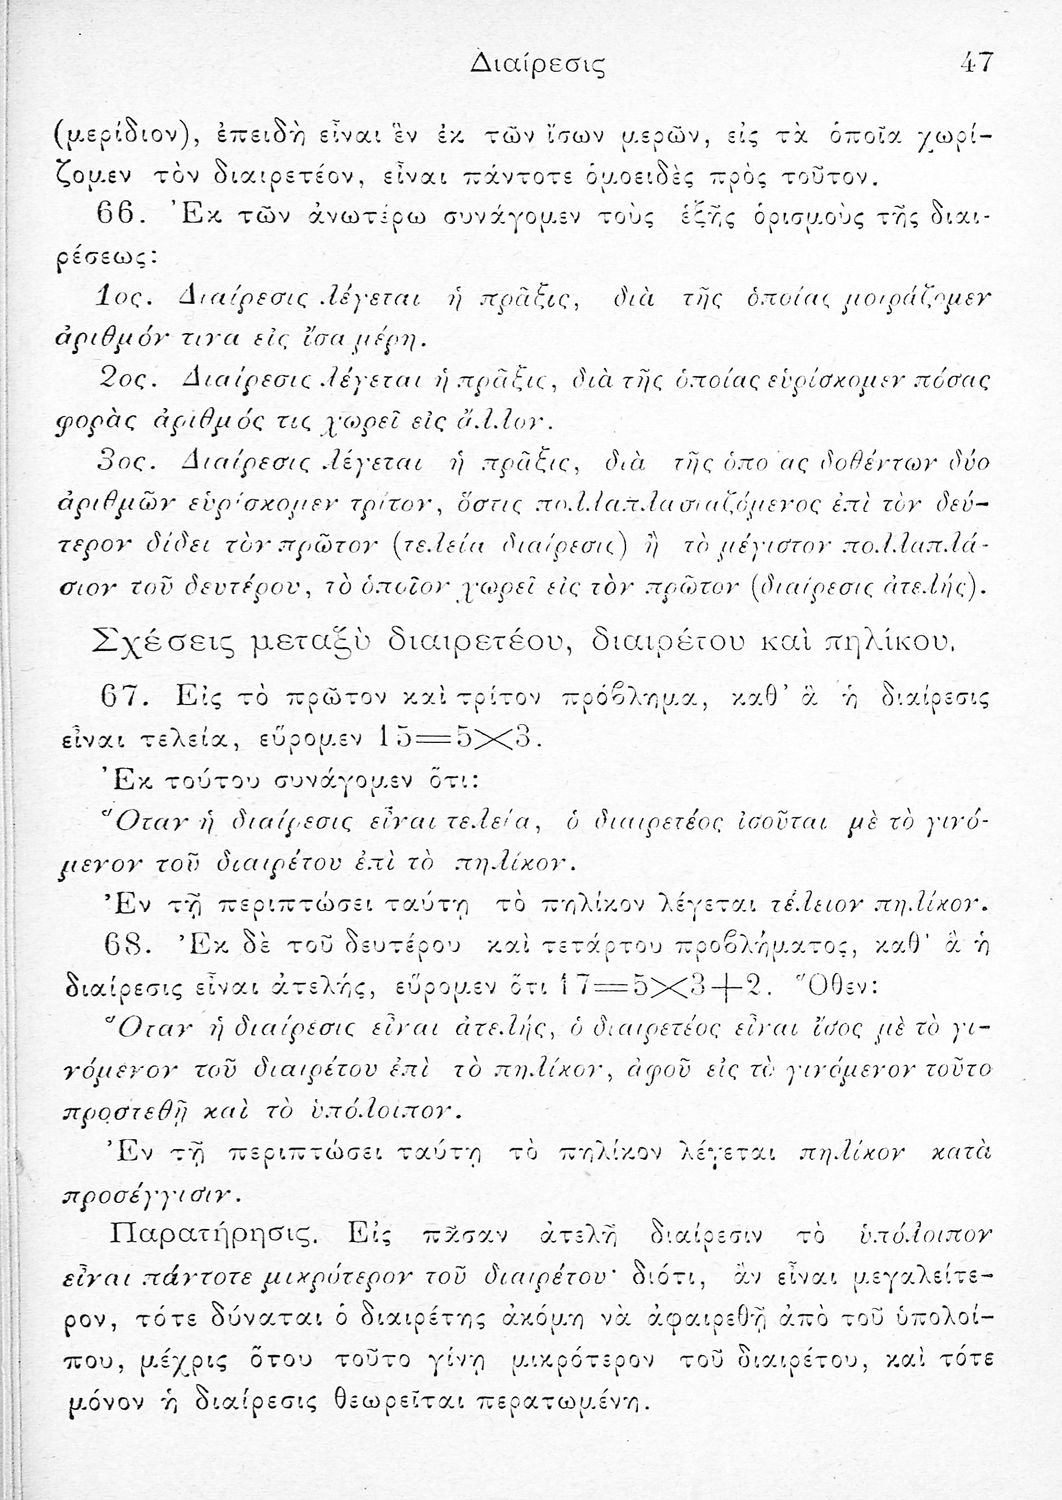 Διαίρεσις 47
(μερίδιον), ἐπειδὴ εἶναι ἓν ἐκ τῶν ἴσων μερῶν, εἰς τὰ ὁποῖα χωρί-
ζομεν τὸν διαιρετέον, εἶναι πάντοτε ὁμοειδὲς πρὸς τοῦτον.
66. Ἐκ τῶν ἀνωτέρω συνάγομεν τοὺς ἑξῆς ὁρισμοὺς τῆς διαι-
ρέσεως:
1ος. Διαίρεσις λέγεται ἡ πρᾶξις, διὰ τῆς ὁποίας μοιράζομεν
ἀριθμόν τινα εἰς ἴσα μέρη.
2ος. Διαίρεσις λέγεται ἡ πρᾶξις, διὰ τῆς ὁποίας εὑρίσκομεν πόσας
φορὰς ἀριθμός τις χωρεῖ εἰς ἄλλον.
3ος. Διαίρεσις λέγεται ἡ πρᾶξις, διὰ τῆς ὁποίας δοθέντων δύο
ἀριθμῶν εὑρίσκομεν τρίτον, ὅστις πολλαπλασιαζόμενος ἐπὶ τὸν δεύ-
τερον δίδει τὸν πρῶτον (τελεία διαίρεσις) ἢ τὸ μέγιστον πολλαπλά-
σιον τοῦ δευτέρου, τὸ ὁποῖον χωρεῖ εἰς τὸν πρῶτον (διαίρεσις ἀτελής).
Σχέσεις μεταξὺ διαιρετέου, διαιρέτου καὶ πηλίκου.
67. Εἰς τὸ πρῶτον καὶ τρίτον πρόβλημα, καθ' ἃ ἡ διαίρεσις
εἶναι τελεία, εὕρομεν 15=5×3.
Ἐκ τούτου συνάγομεν ὅτι:
Ὅταν ἡ διαίρεσις εἶναι τελεία, ὁ διαιρετέος ἰσοῦται μὲ τὸ γινό-
μενον τοῦ διαιρέτου ἐπὶ τὸ πηλίκον.
Ἐν τῇ περιπτώσει ταύτῃ τὸ πηλίκον λέγεται τέλειον πηλίκον.
68. Ἐκ δὲ τοῦ δευτέρου καὶ τετάρτου προβλήματος, καθ' ἃ ἡ
διαίρεσις εἶναι ἀτελής, εὕρομεν ὅτι 17=5×3+2. Ὅθεν:
Ὅταν ἡ διαίρεσις εἶναι ἀτελής, ὁ διαιρετέος εἶναι ἴσος μὲ τὸ γι-
νόμενον τοῦ διαιρέτου ἐπὶ τὸ πηλίκον, ἀφοῦ εἰς τὸ γινόμενον τοῦτο
προστεθῇ καὶ τὸ ὑπόλοιπον.
Ἐν τῇ περιπτώσει ταύτῃ τὸ πηλίκον λέγεται πηλίκον κατὰ
προσέγγισιν.
Παρατήρησις. Εἰς πᾶσαν ἀτελῆ διαίρεσιν τὸ ὑπόλοιπον
εἶναι πάντοτε μικρότερον τοῦ διαιρέτου· διότι, ἂν εἶναι μεγαλείτε-
ρον, τότε δύναται ὁ διαιρέτης ἀκόμη νὰ ἀφαιρεθῇ ἀπὸ τοῦ ὑπολοί-
που, μέχρις ὅτου τοῦτο γίνῃ μικρότερον τοῦ διαιρέτου, καὶ τότε
μόνον ἡ διαίρεσις θεωρεῖται περατωμένη.